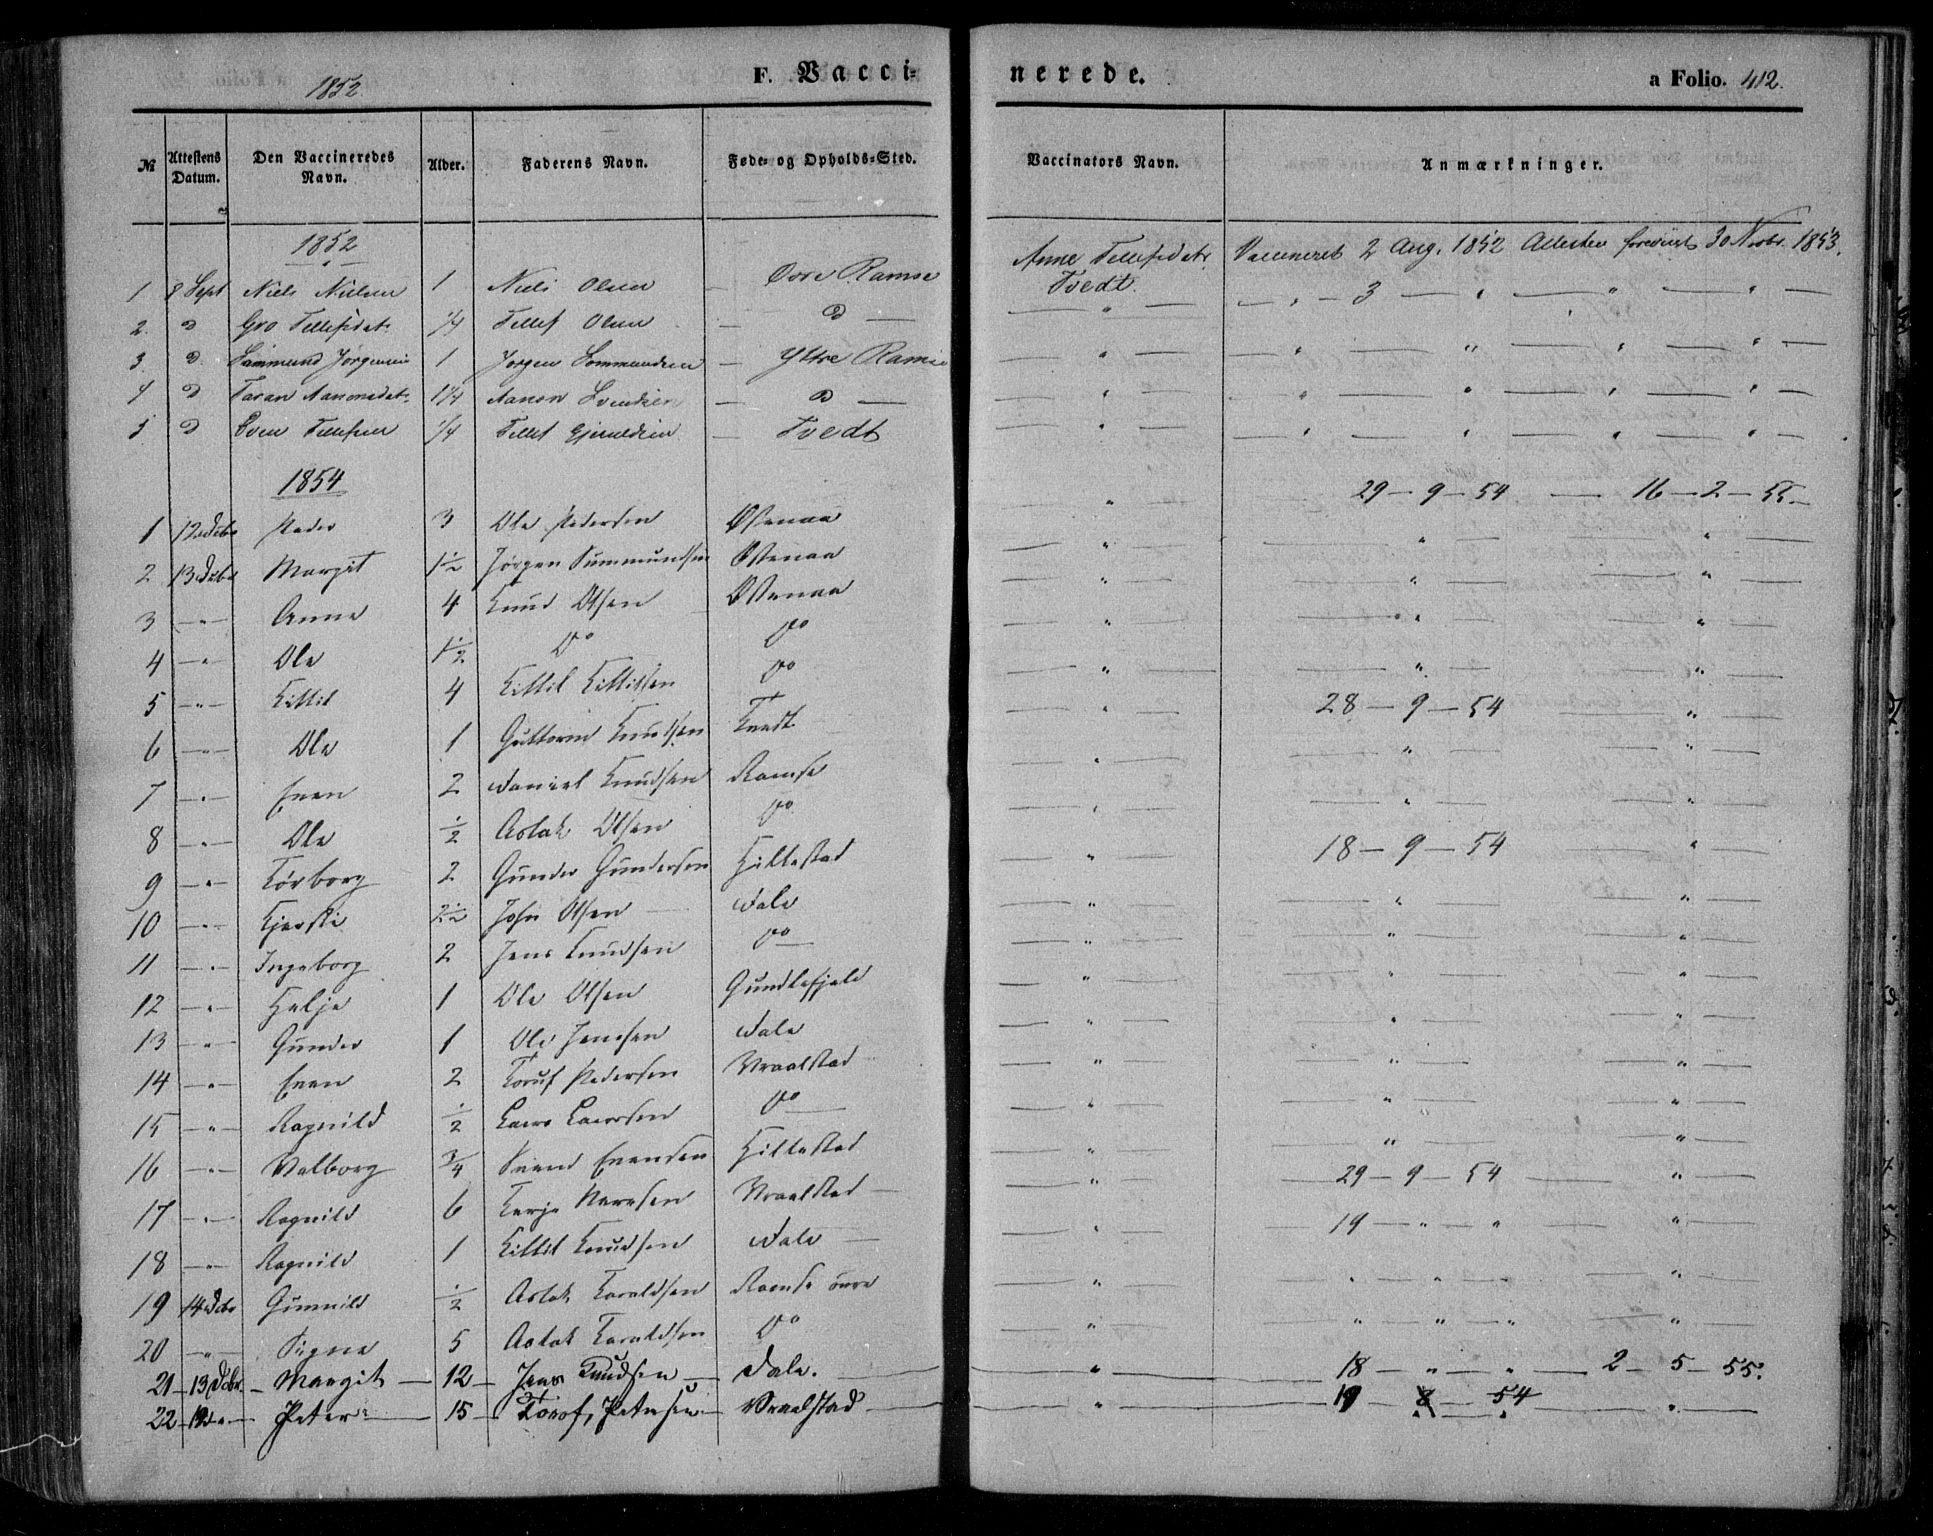 1852 F. Vacci= nerede. a Folio. 412.
№ Attestens Datum. Den Vaccineredes Navn. Alder. Faderens Navn. Føde= og Opholds=Sted. Vaccinators Navn. Anmærkninger.
1852
1 8 Sept Niels Nielsen 1 Niels Olsen — Øvre Ramse Anne Tellefsdatr Tvedt. Vaccineret 2 Aug. 1852 Attesten foreviist 30 Novbr. 1853.
2. D Gro Tellefsdatr 1/4 Tellef Olsen — D — " — — " — 3 — " — " — " —
3. D. Sammund Jørgensen 1 Jørgen Sommundsen — Yttre Ramse — " — — " — " — " — " —
4 D Taran Aanonsdatr 1 1/4 Aanon Svendsen — D — — " — — " — " — " — " —
5 D Even Tellefsen 1/4 Tellef Gjeruldsen — Tvedt — " — — " — " — " — " —
1854
1 12 Debr Peder 3 Ole Pedersen Østenaa — " — 29 — 9 — 54 — 16 — 2 — 55 —
2 13 Debr Margit 1 1/2 Jørgen Summundsen Østenaa — " — — " — — " —
3 — " — Anne 4 Knud Olsen Østenaa — " — — " — — " —
4 — " Ole 1 1/2 Do Do — " — — " — — " —
5 — " — Kittil 4 Kittil Kittilsen Do — " — — " — — " —
6 — " — Ole 1 Guttorm Knudsen Tvedt — " — 28 — 9 — 54 — " —
7 — " — Even 2 Daniel Knudsen Ramse — " — — " — — " —
8 — " — Ole 1/2 Aslak Olsen Do — " — — " — — " —
9 — " — Torborg 2 Gunder Gundersen Hillestad — " — 18 — 9 — 54 — " —
10 — " — Kjersti 2 1/2 John Olsen — Dale — " — — " — — " —
11 — " — Ingeborg 2 Jens Knudsen Do — — " — — " — — " —
12 — " — Helje 1 Ole Olsen Gundlefjeld — " — — " — — " —
13 — " — Gunder 1 Ole Jensen Dale — " — — " — — " —
14 — " — Even 2 Toruf Pedersen Vraalstad — " — — " — — " —
15 — " — Ragnild 1/2 Laers Laersen Do — — " — — " — — " —
16 — " — Valborg 3/4 Svend Evensen Hillestad — " — — " — — " —
17 — " — Ragnild 6 Terje Nersen Vraalstad — — " — 29 — 9 — 54 — " —
18 — " — Ragnild 1 Kittil Knudsen Dale — — " — 19 — " — " — " —
19 14 Debr Gunnild 1/2 Aslak Taraldsen Ramse øvre — " — " — " — " — " —
20 — " — Signe 5 Aslak Taraldsen Do — " — " — " — " — " —
21 — 13 Debr. — Margit — 12 — Jens Knudsen — Dale. — " — 18 — " — " — 2 — 5 — 55.
22 — — " — Peter — 15 — Torof, Petersen — Vraalstad — " — 19 8 — 54 — " —